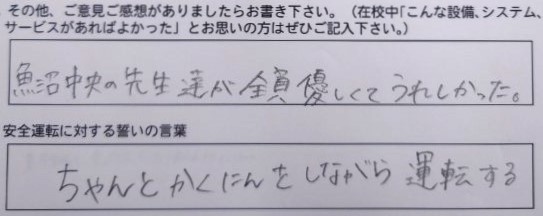 その他、ご意見ご感想がありましたらお書き下さい。（在校中「こんな設備、システム、
サービスがあればよかった」とお思いの方はぜひご記入下さい。）
魚沼中央の先生達が全員優しくてうれしかった。
安全運転に対する誓いの言葉
ちゃんとかくにんをしながら運転する